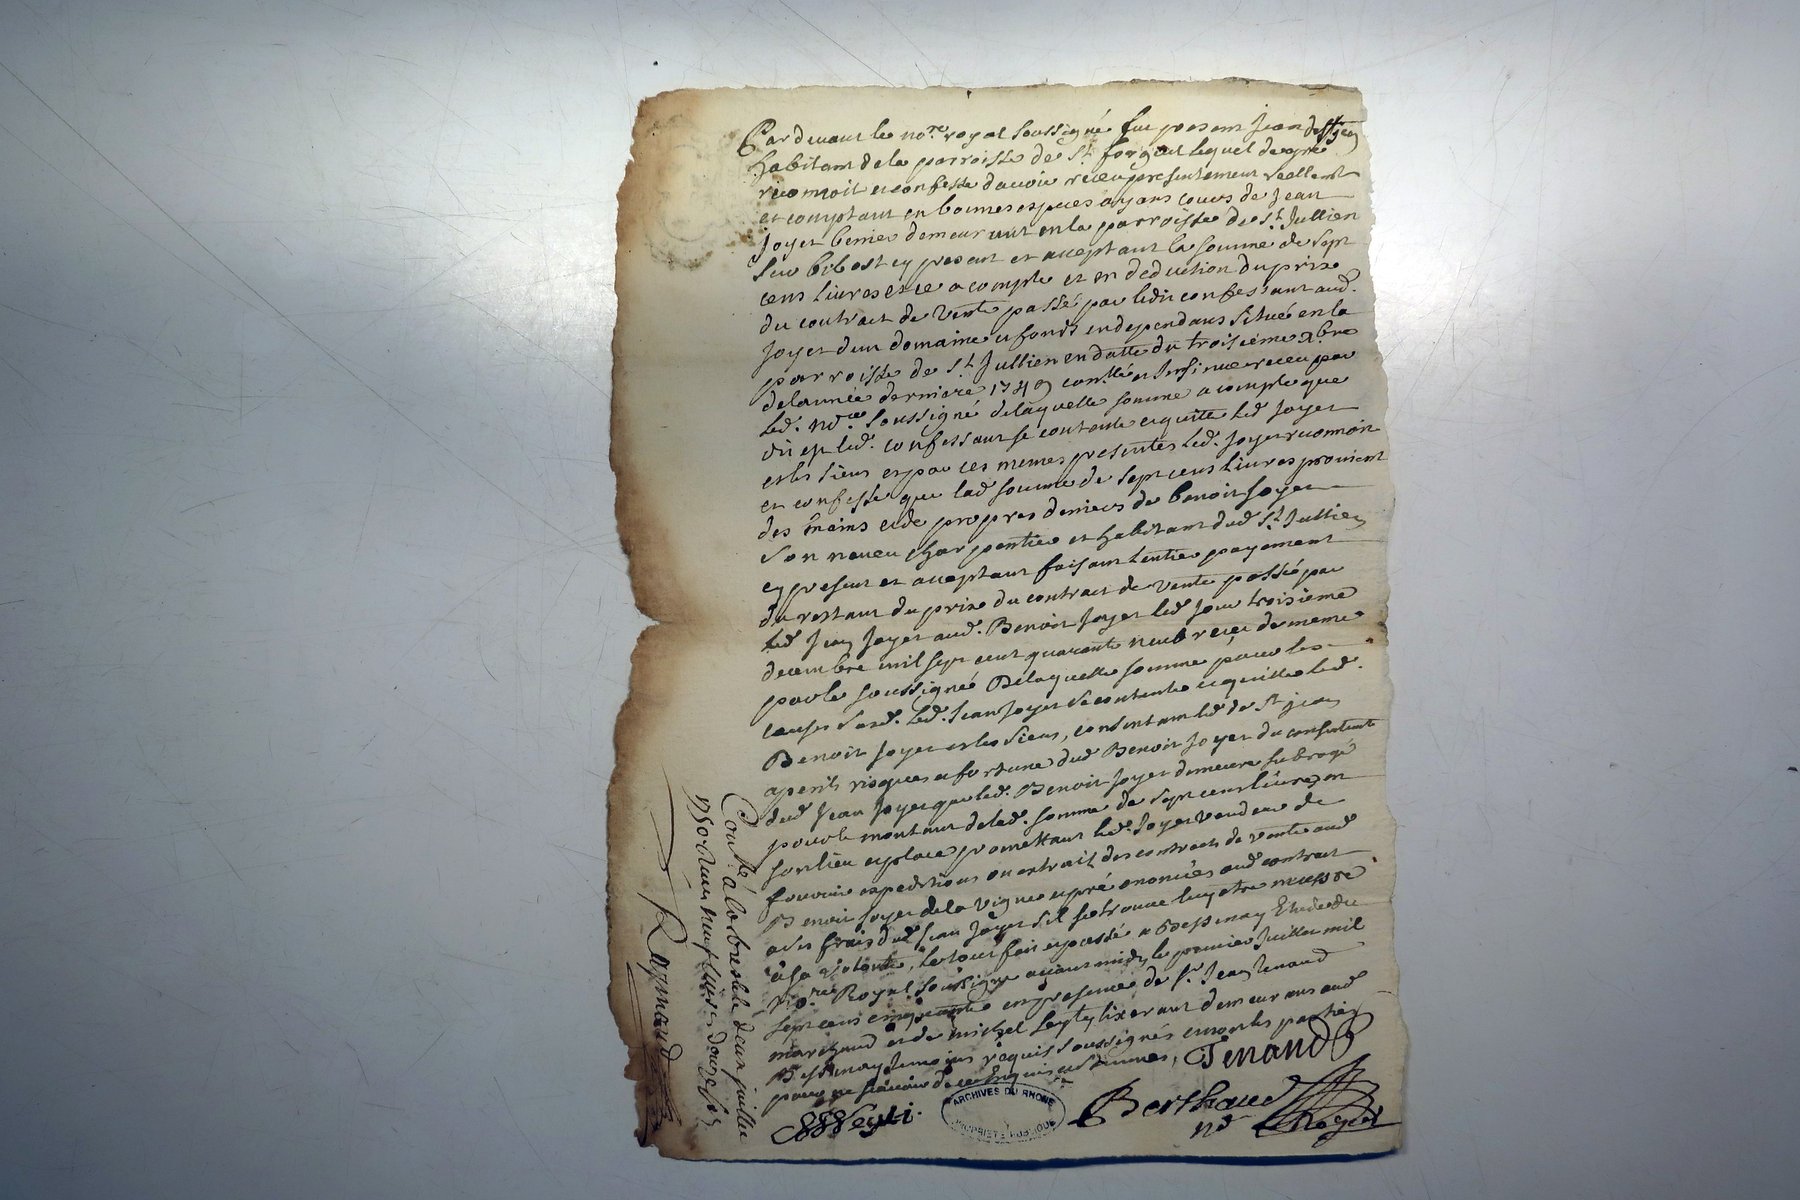 Pardevant le no.re royal soussigné fut present Jean de st jean
habitant de la parroisse de S.t forgeut lequel de gré
reconnoit et confesse d'avoir receu presentement reellemt
et comptant en bonnes especes ayans cours de Jean
Joyet demeurant en la parroisse de S.t Jullien
Sur bibost cy present et acceptant la somme de Sept
cens livres et ce a compte et en deduction du prix
du contract de vente passé par ledit confessant aud.
Joyet d'un domaine et fonds en dependans Situé en la
parroisse de S.t Jullien en datte du troisieme Xbre
de l'année derniere 1749 con.llé et Insinué receu par
led. no.re soussigné de laquelle somme a compte que
led. confessant se contente et quitte led Joyet
et les siens et par ces memes presentes led. Joyet reconnoit
et confesse que lad somme de sept cens livres provient
des mains et de propres deniers de benoit Joyet
Son neveu charpentier et habitant dud S.t Jullien
cy present et acceptant faisant l'entier payement
du restant du prix du contract de vente passé par
led Jean Joyet aud. Benoit Joyet led jour troisieme
decembre mil sept cent quarante neuf receu de meme
par le soussigné De laquelle somme pour les
causes susd. led. Jean Joyet se contente et quitte led.
Benoit Joyet et les siens, consentant led de St jean
a perils risques et fortune dud Benoit Joyet du consentemt
dud Jean Joyet que led. Benoit Joyet demeure subrogé
pour le montant de lad. somme de sept cens livres en
son lieu et place promettant led. Joyet vendeur de
fournir expeditions ou extrait des contracts de vente aud
Benoit Joyet de la vigne cy énoncées aud contract
a ses frais dud Jean Joyet s'il se trouve luy etre necessre
à sa volonté, le tout fait et passé a Bessenay Etude du
no.re Royal soussigné avant midy le premier Juillet mil
sept cens cinquante en presence de S.r Jean Tenaud
marchand et de michel tixerant demeurans aud
Bessenay temoins requis soussignés et non les parties
pour ne sçavoir de ce enquis et sommés,
Tenaud
Berthaud
no. Royal
ARCHIVES DU RHONE
PROPRIETE PUBLIQUE
Con.llé à Larbresle le deux juillet
1750 Receu neuf livres douze sols
Raymond